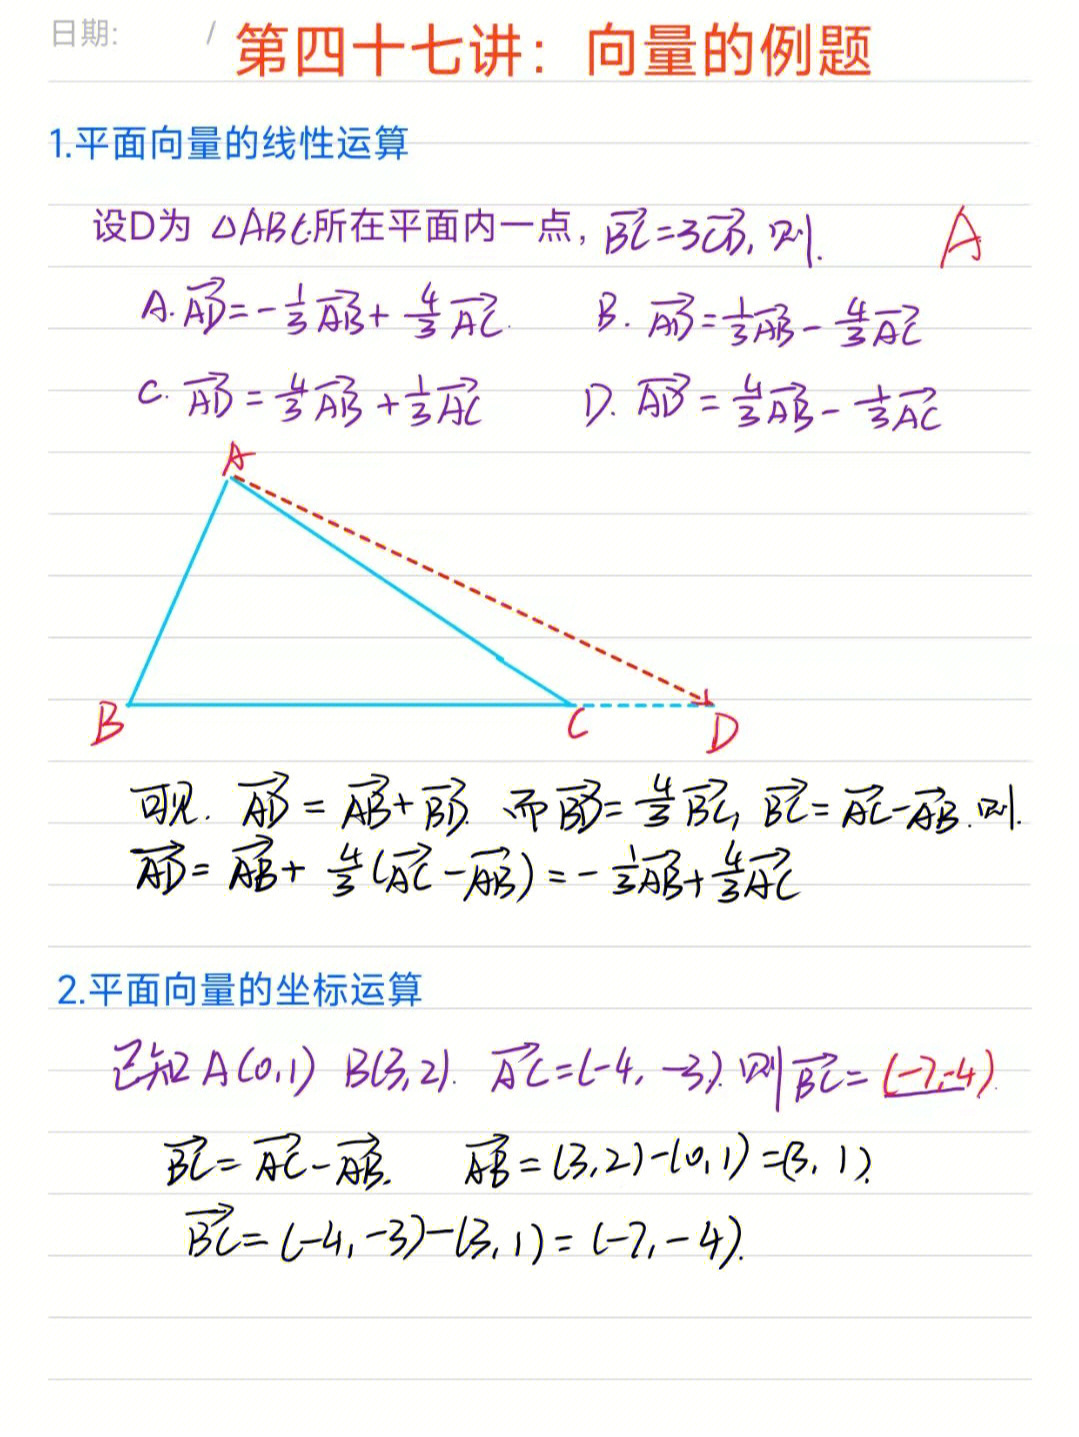 日期: /
第四十七讲：向量的例题
1.平面向量的线性运算
设D为 △ABC所在平面内一点，$\overrightarrow{BC}=3\overrightarrow{CD}$, 则. A
A. $\overrightarrow{AD}=-\frac{1}{3}\overrightarrow{AB}+\frac{4}{3}\overrightarrow{AC}$. B. $\overrightarrow{AD}=\frac{1}{3}\overrightarrow{AB}-\frac{4}{3}\overrightarrow{AC}$
C. $\overrightarrow{AD}=\frac{4}{3}\overrightarrow{AB}+\frac{1}{3}\overrightarrow{AC}$ D. $\overrightarrow{AD}=\frac{4}{3}\overrightarrow{AB}-\frac{1}{3}\overrightarrow{AC}$
A
B C D
可见. $\overrightarrow{AD}=\overrightarrow{AB}+\overrightarrow{BD}$. 而$\overrightarrow{BD}=\frac{4}{3}\overrightarrow{BC}$, $\overrightarrow{BC}=\overrightarrow{AC}-\overrightarrow{AB}$. 则.
$\overrightarrow{AD}=\overrightarrow{AB}+\frac{4}{3}(\overrightarrow{AC}-\overrightarrow{AB})=-\frac{1}{3}\overrightarrow{AB}+\frac{4}{3}\overrightarrow{AC}$
2.平面向量的坐标运算
已知 A(0,1) B(3,2). $\overrightarrow{AC}=(-4,-3)$. 则$\overrightarrow{BC}=$ (-7,-4).
$\overrightarrow{BC}=\overrightarrow{AC}-\overrightarrow{AB}$. $\overrightarrow{AB}=(3,2)-(0,1)=(3,1)$.
$\overrightarrow{BC}=(-4,-3)-(3,1)=(-7,-4)$.